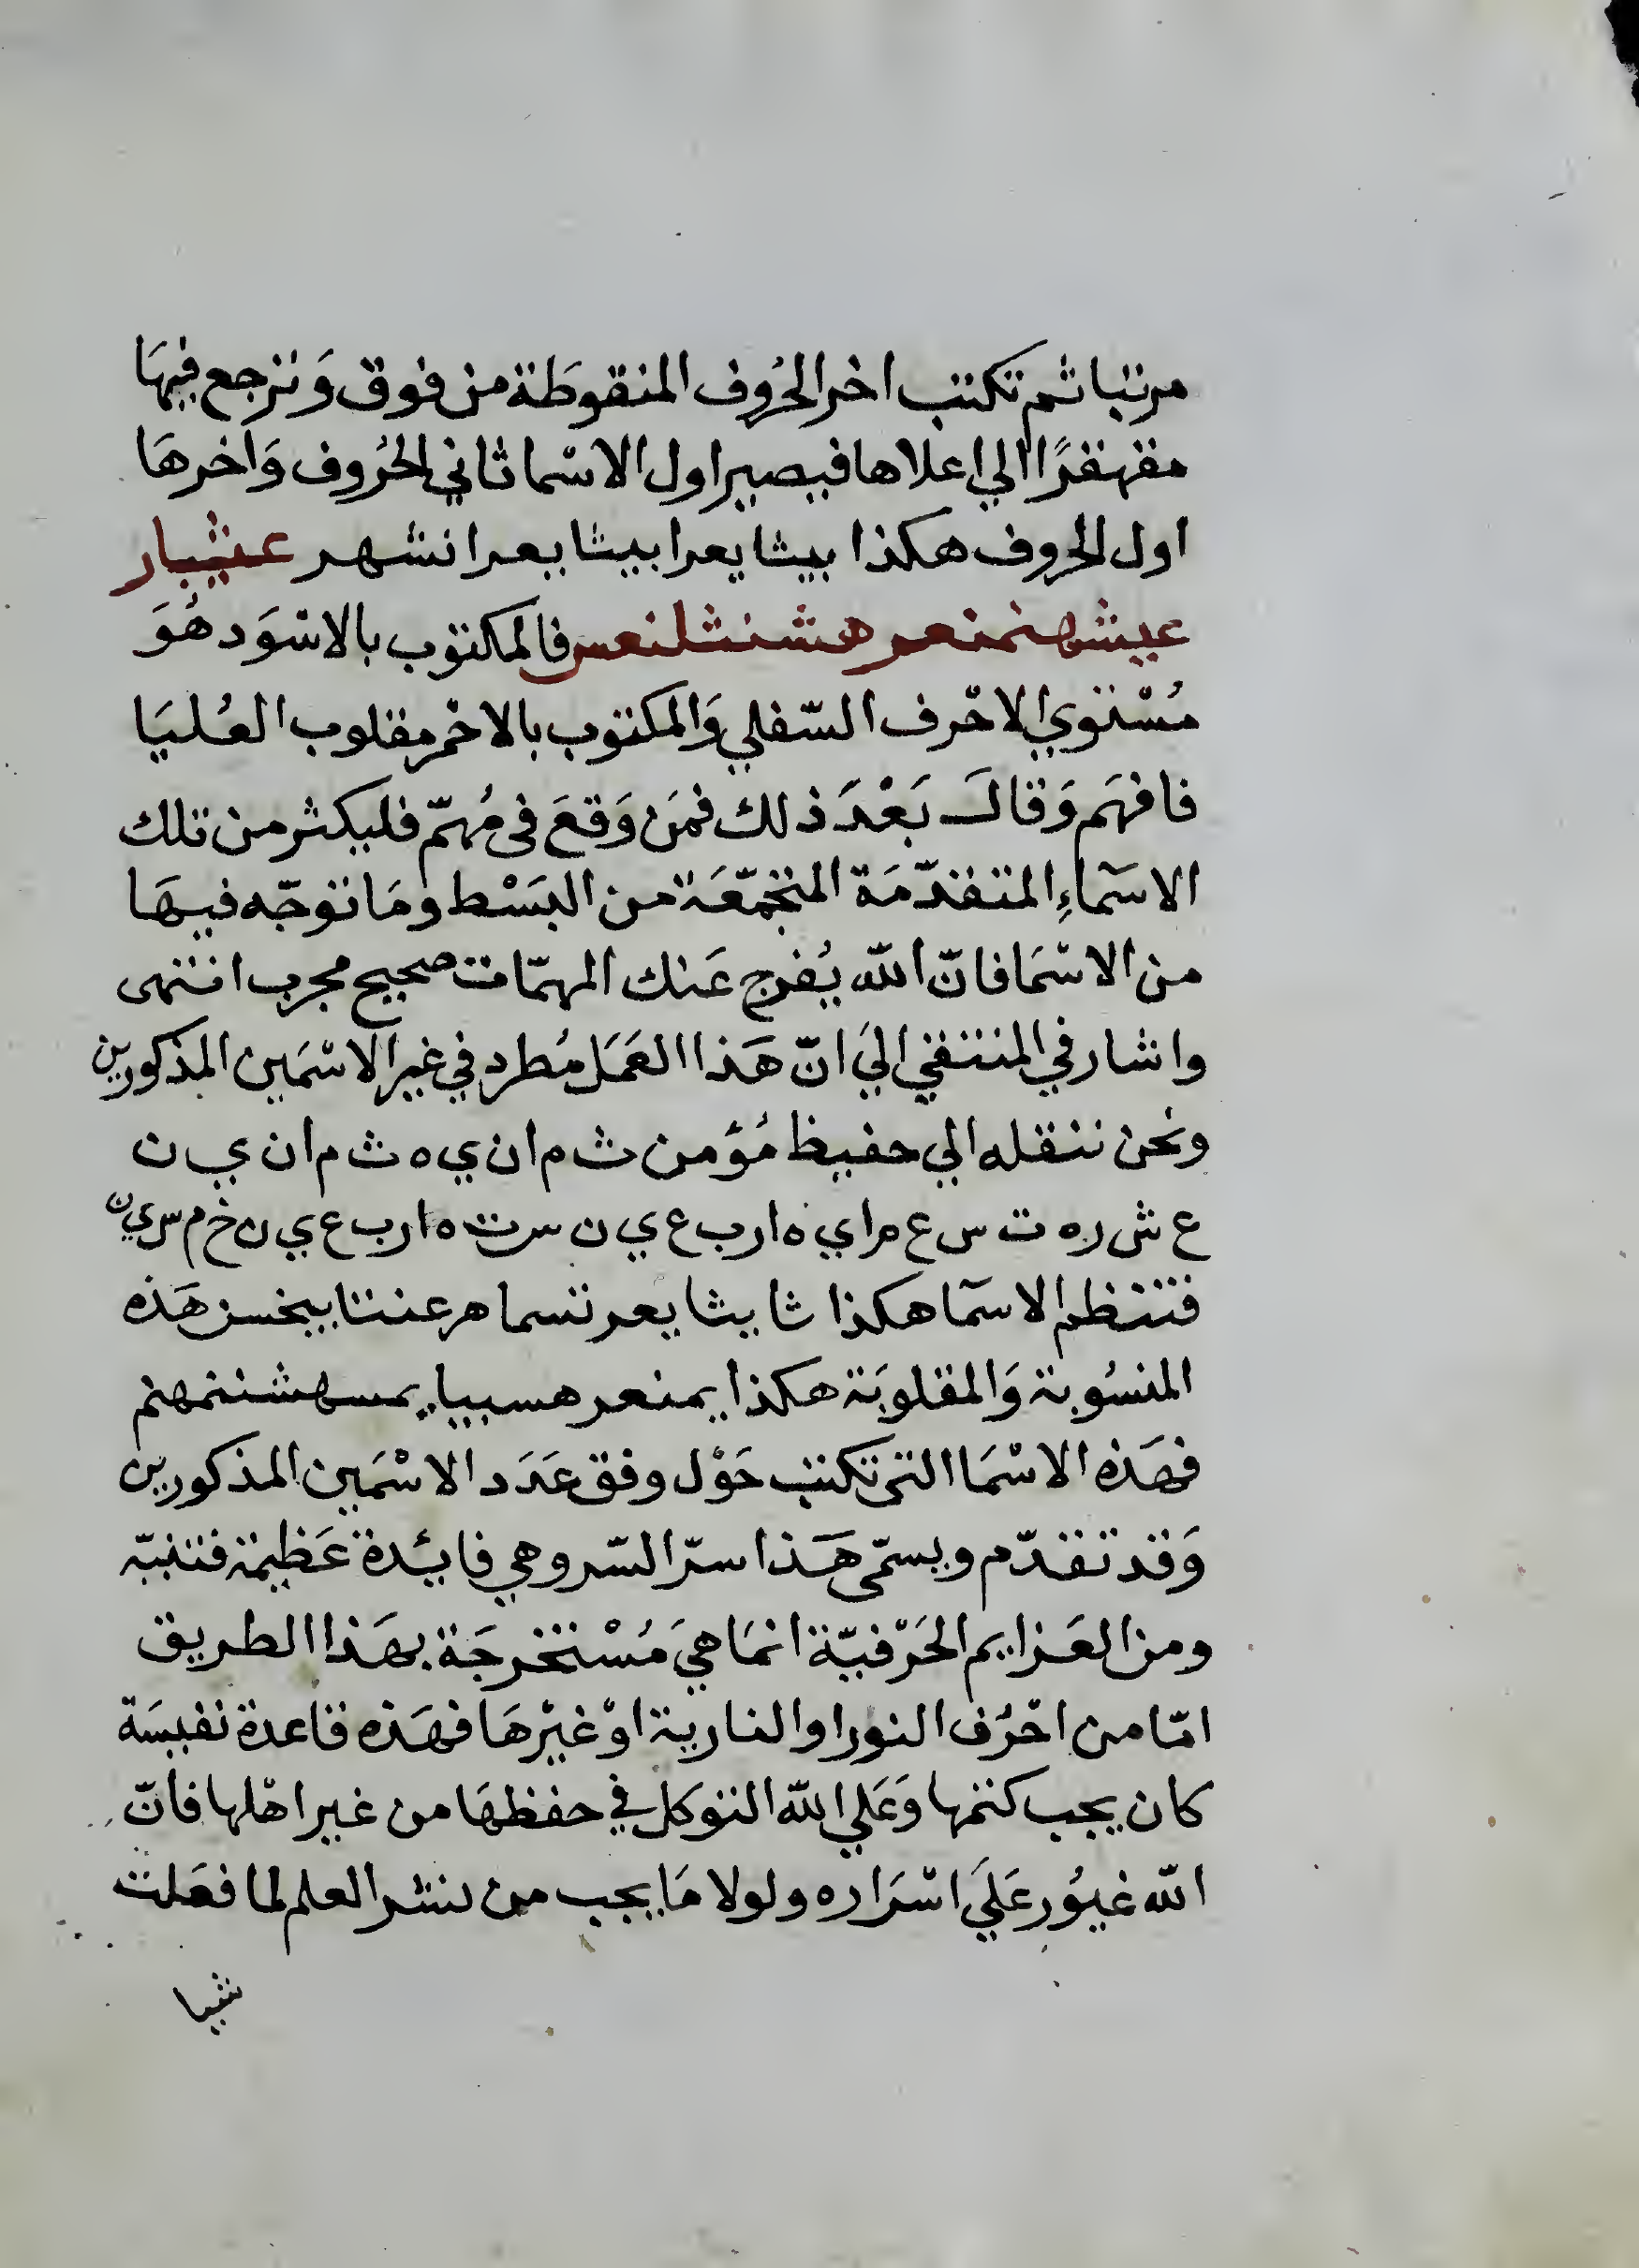 مرتبا ثم تكتب اخر الحُروف المنقوطَة من فوق وَترجع فيهَا
مقهقرًا الي اعلاها فيصير اول الاسْما ثاني الحُروف وَاخرهَا
اول الحروف هكذا بيثا يعرا بيثا يعرا نشهر عنثيبار
عيشهنمنعر هشنشلنعس فالمكتوب بالاسْوَد هُوَ
مُسْتوي الاحْرف السّفلي وَالمكتوب بالاحْمر مقلوب العُليَا
فافهَم وَقالَ بَعْدَ ذلك فمَن وَقعَ فى مُهمّ فليكثر من تلك
الاسَمآءِ المتقدّمَة المتجمّعَة من البَسْط ومَا توجّه فيهَا
من الاسْمَا فانّ الله يُفرج عَنك المهمّات صحيح مجرب انتهى
واشار في المنتقي اليَ انّ هَذا العَمَل مُطرد في غير الاسْمَين المذكورين
ونحن ننقله الي حفيظ مُؤمن ث م ا ن ي ه ث م ا ن ي ن
ع ش ر ه ت س ع م ا ي ه ا ر ب ع ي ن س ت ه ا ر ب ع ي ن خ م س ي ن
فتنظم الاسمآ هكذا ثا يثا يعر تسما هر عنتا يبخسن هَذه
المنسُوبة وَالمقلوبَة هكذا يمنعر هسبيا يمسهشنمهنم
فهَذه الاسْمَا التى تكتب حَوْل وفق عَدَد الاسْمَين المذكورين
وَقد تقدّم ويسمّى هَذا سرّ السّر وهي فايُدة عَظيمة فتنبّه
ومن العَزايم الحَرْفيّة انمَا هيَ مُسْتخرجَة بهَذا الطريق
امّا من احْرُف النور او النارية اوْ غيْرهَا فهَذه قاعدة نفيسَة
كان يجب كتمها وَعَلي الله التوكل في حفظهَا من غير اهْلها فانّ
الله غيُور عَلَي اسْرَاره ولولا مَا يجب من نشر العلم لما فعَلت
شيا